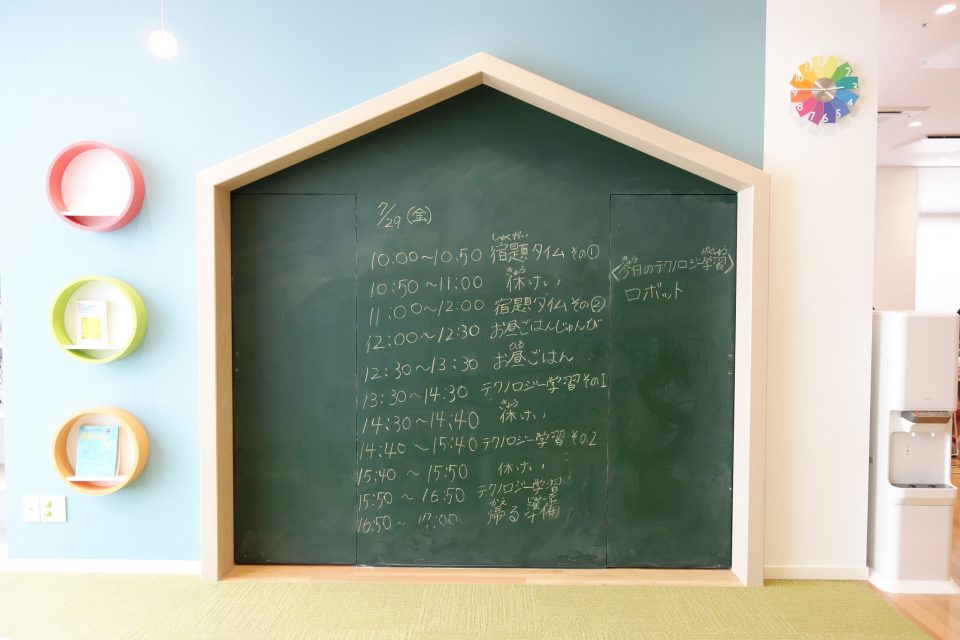 7/29(金)
しゅくだい
10:00～10:50 宿題タイム その①
きゅう
10:50～11:00 休けい
11:00～12:00 宿題タイム その②
12:00～12:30 お昼ごはんじゅんび
ひる
12:30～13:30 お昼ごはん
13:30～14:30 テクノロジー学習 その1
きゅう
14:30～14:40 休けい
14:40～15:40 テクノロジー学習 その2
15:40～15:50 休けい
15:50～16:50 テクノロジー学習
かえ じゅんび
16:50～17:00 帰る準備
きょう がくしゅう
〈今日のテクノロジー学習〉
ロボット
12
1
2
3
4
5
6
7
8
9
10
11